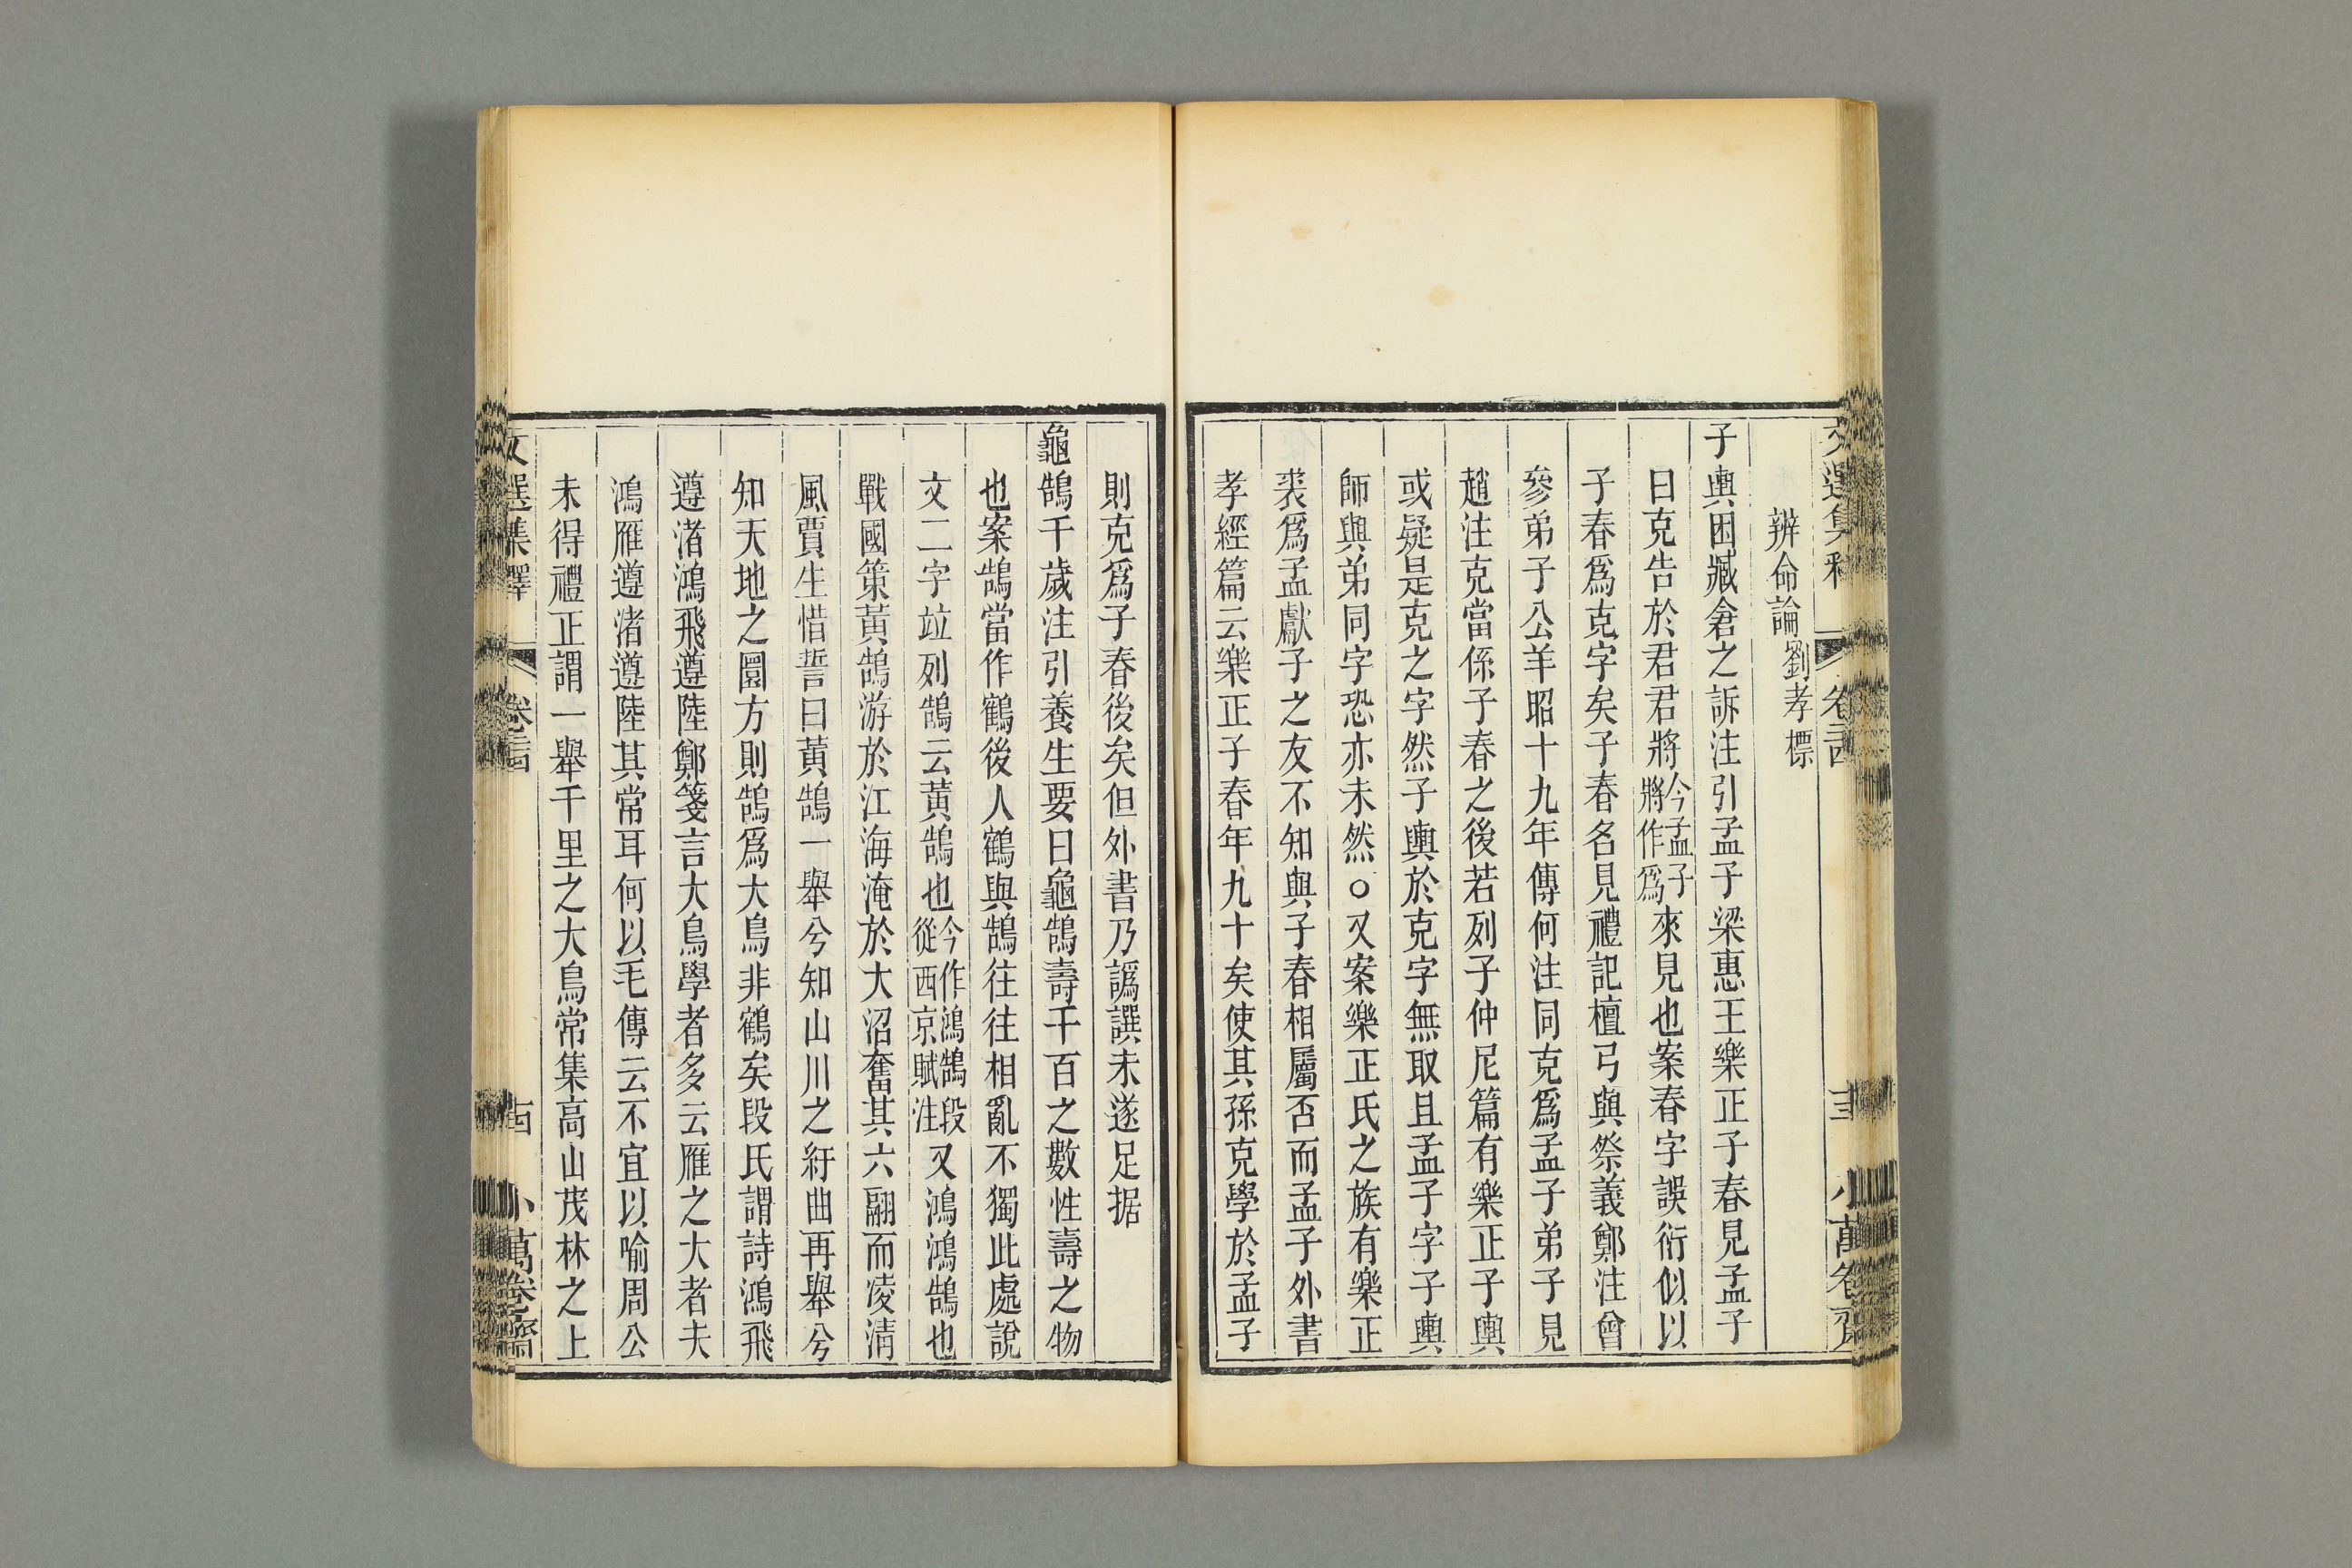 文選集釋 卷二十四 十三 小萬卷齋
辨命論劉孝標
子輿困臧倉之訴注引孟子梁惠王樂正子春見孟子
曰克告於君君將今孟子將作爲來見也案春字誤衍似以
子春爲克字矣子春名見禮記檀弓與祭義鄭注曾
參弟子公羊昭十九年傳何注同克爲孟子弟子見
趙注克當係子春之後若列子仲尼篇有樂正子輿
或疑是克之字然子輿於克字無取且孟子字子輿
師與弟同字恐亦未然○又案樂正氏之族有樂正
裘爲孟獻子之友不知與子春相屬否而孟子外書
孝經篇云樂正子春年九十矣使其孫克學於孟子
則克爲子春後矣但外書乃譌譔未遂足据
龜鵠千歲注引養生要曰龜鵠壽千百之數性壽之物
也案鵠當作鶴後人鶴與鵠往往相亂不獨此處說
文二字竝列鵠云黃鵠也今作鴻鵠段從西京賦注又鴻鴻鵠也
戰國策黃鵠游於江海淹於大沼奮其六翮而凌淸
風賈生惜誓曰黃鵠一舉兮知山川之紆曲再舉兮
知天地之圜方則鵠爲大鳥非鶴矣段氏謂詩鴻飛
遵渚鴻飛遵陸鄭箋言大鳥學者多云雁之大者夫
鴻雁遵渚遵陸其常耳何以毛傳云不宜以喻周公
未得禮正謂一舉千里之大鳥常集高山茂林之上
文選集釋 卷二十四 十四 小萬卷齋